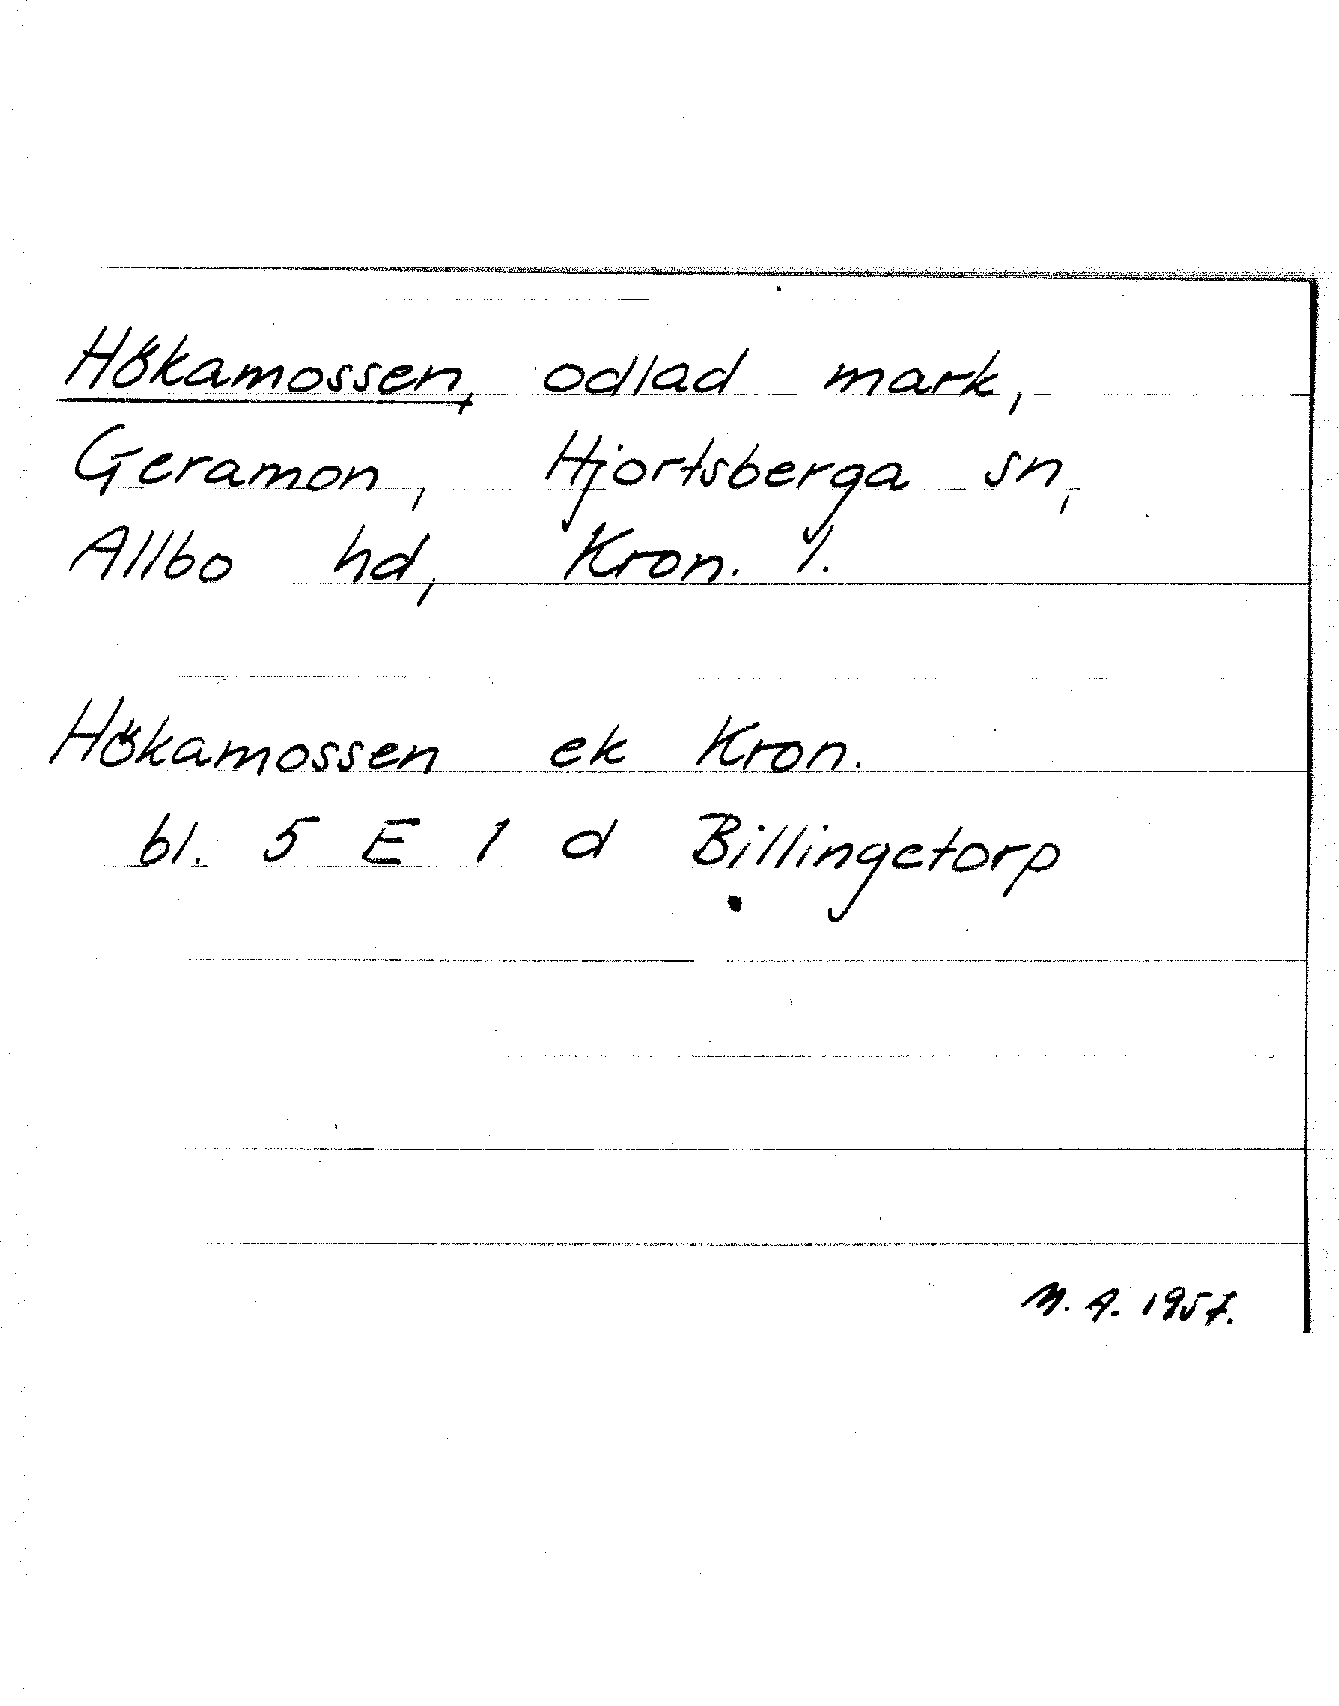 Hökamossen, odlad mark,
Geramon, Hjortsberga sn,
Allbo hd, Kron. l.
Hökamossen ek Kron.
bl. 5 E 1 d Billingetorp
M. A. 1957.